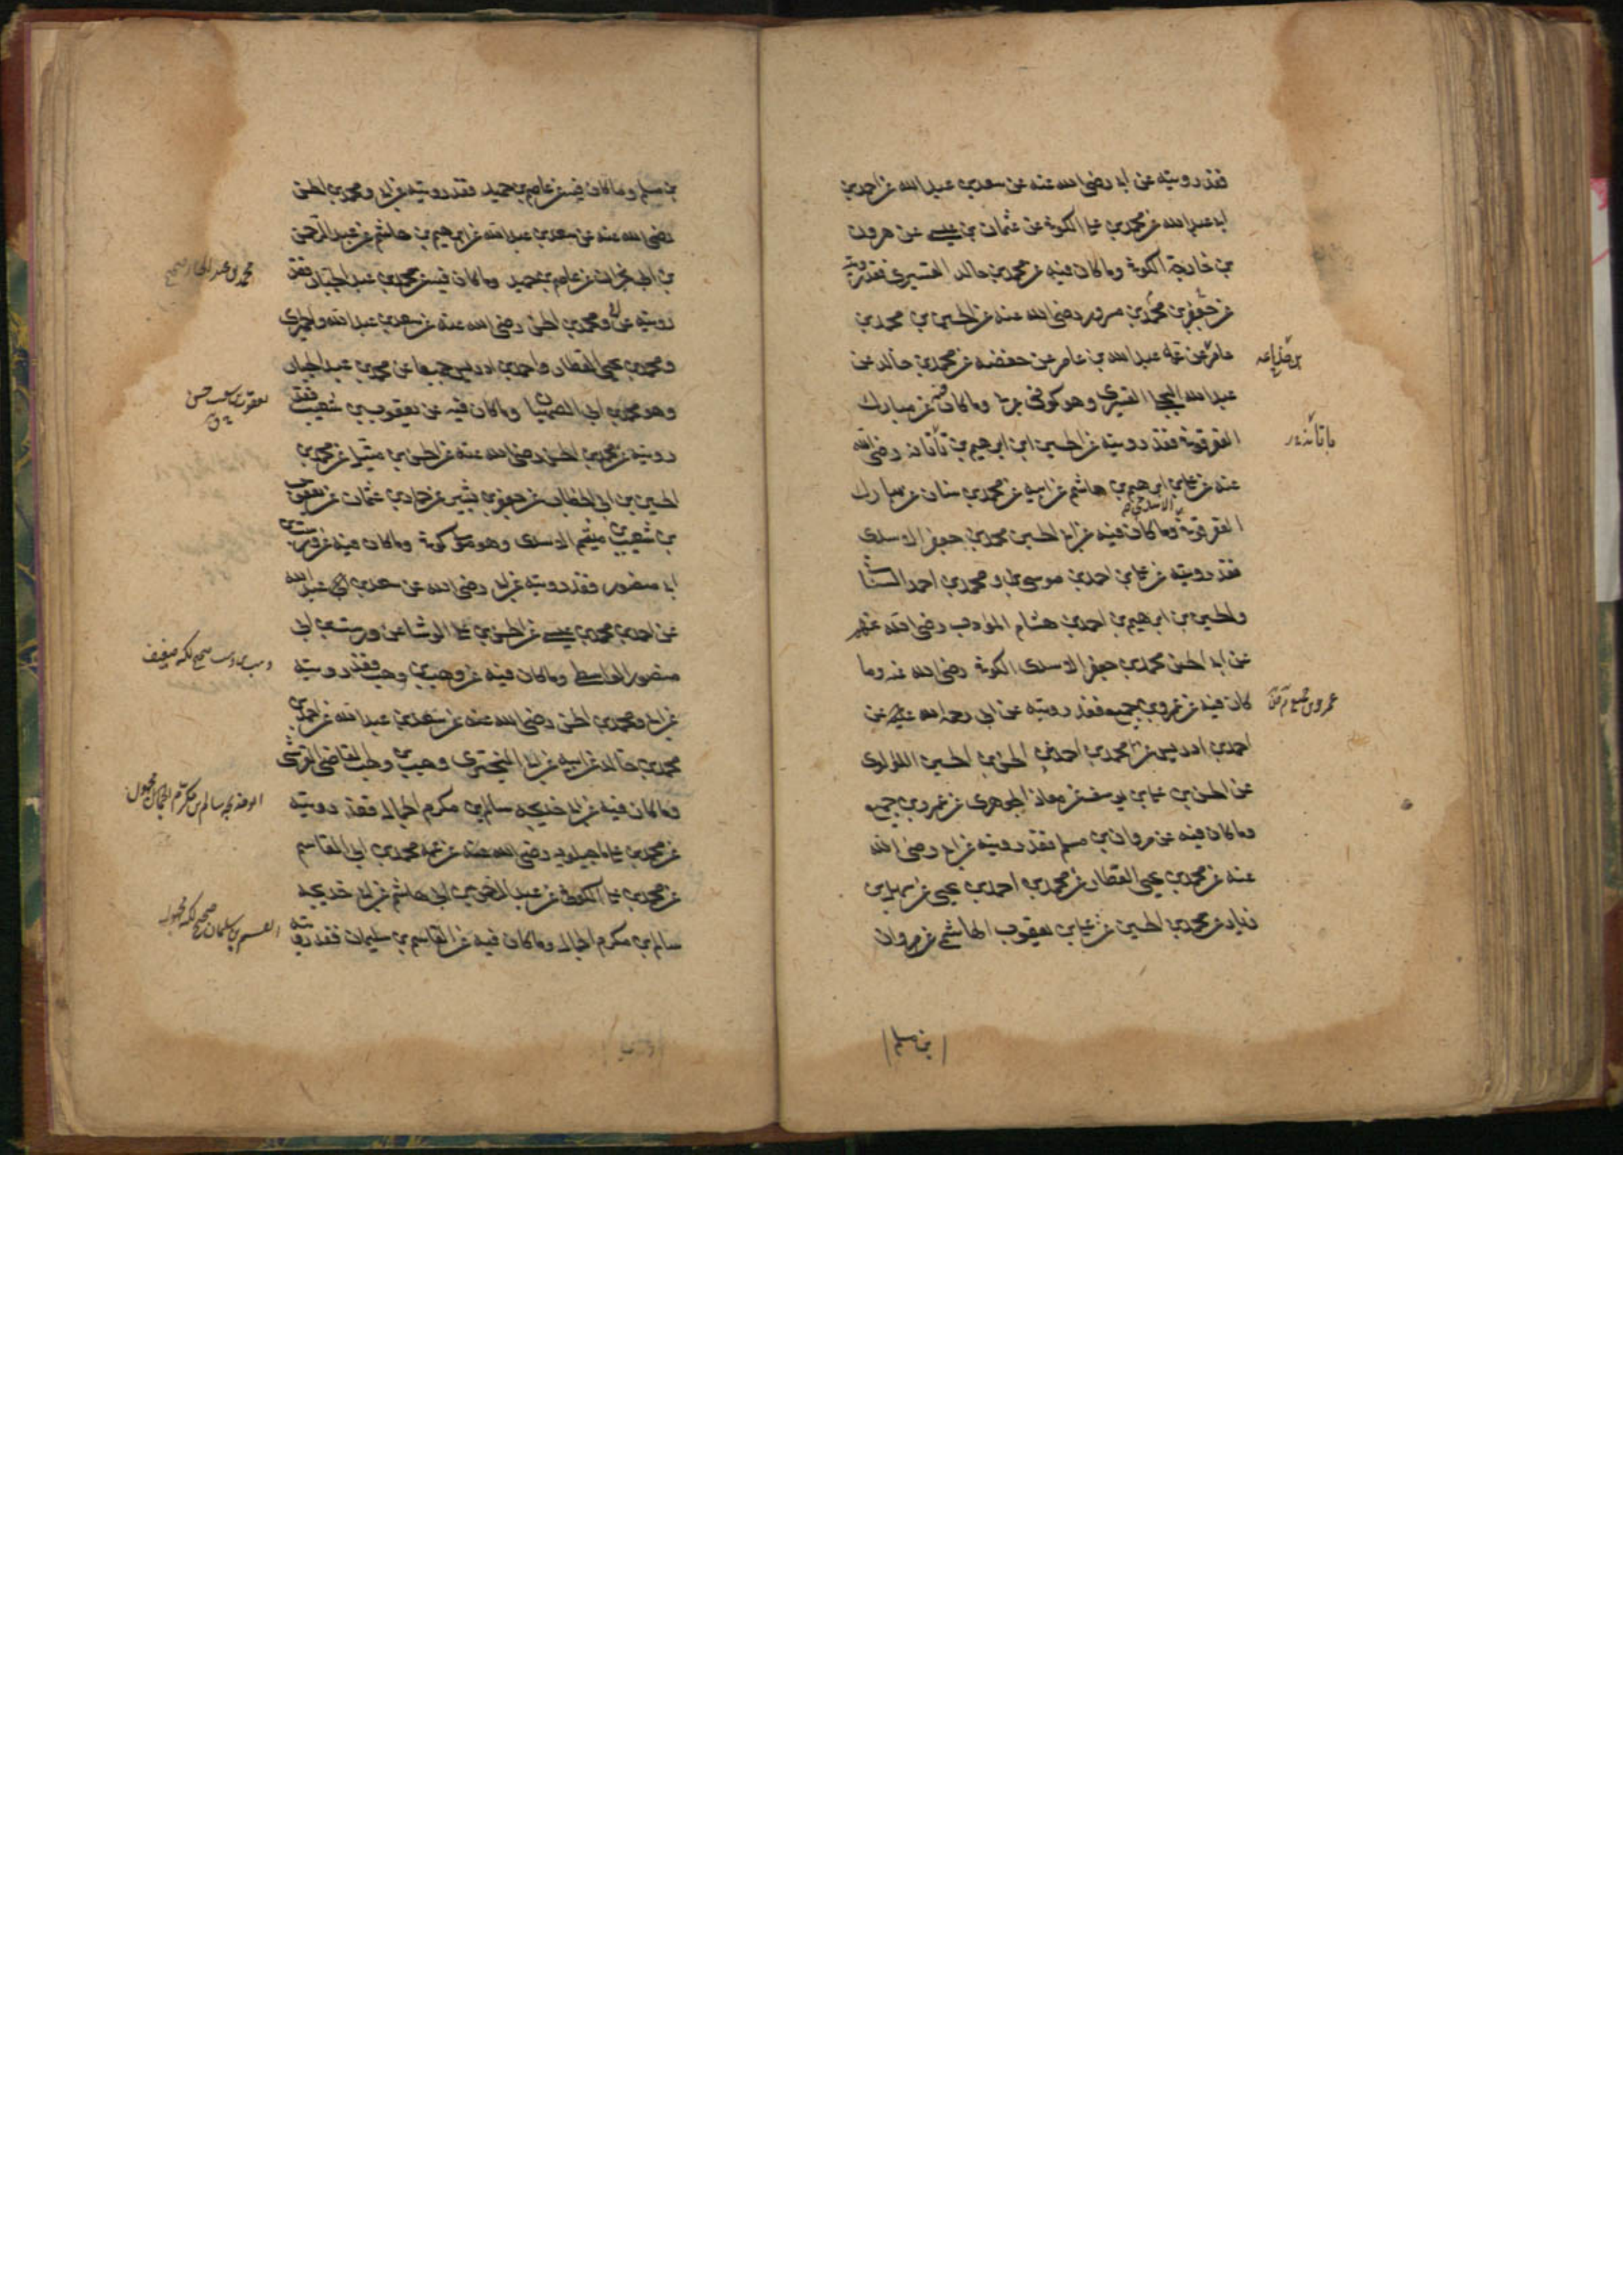 فقد رويته عن ابي رضي الله عنه عن سعد بن عبد الله عن احمد بن
ابي عبد الله عن محمد بن علي الكوفي عن عثمان بن عيسى عن هرون
بن خارجة الكوفي وما كان فيه عن محمد بن خالد القسري فقد رويته
عن جعفر بن محمد بن مسرور رضي الله عنه عن الحسين بن محمد بن
عامر عن عمه عبد الله بن عامر عن حفصه عن محمد بن خالد بن
عبد الله البجلي القسري وهو كوفي عربي وما كان فيه عن مبارك
العقرقوفي فقد رويته عن الحسين ابن ابرهيم بن تاتانه رضي الله
عنه عن علي بن ابرهيم بن هاشم عن ابيه عن محمد بن سنان عن مبارك
العقرقوفي وما كان فيه عن ابي الحسين محمد بن جعفر الاسدي
فقد رويته عن علي بن احمد بن موسى و محمد بن احمد السناني
والحسين بن ابرهيم بن احمد بن هشام المؤدب رضي الله عنهم
عن ابي الحسن محمد بن جعفر الاسدي الكوفي رضي الله عنه وما
كان فيه عن عمرو بن جميع فقد رويته عن ابي رحمه الله عليه عن
احمد بن ادريس عن محمد بن احمد عن الحسن بن الحسين اللؤلؤي
عن الحسن بن علي بن يوسف عن معاذ الجوهري عن عمرو بن جميع
وما كان فيه عن مروان بن مسلم فقد رويته عن ابي رضي الله
عنه عن محمد بن يحيى العطار عن محمد بن احمد بن يحيى عن سهل بن
زياد عن محمد بن الحسين عن علي بن يعقوب الهاشمي عن مروان
بن مسلم
بن مسلم وما كان فيه عن عاصم بن حميد فقد رويته عن ابي ومحمد بن الحسن
رضي الله عنه عن سعد بن عبد الله عن ابرهيم بن هاشم عن عبد الرحمن
بن ابي نجران عن عاصم بن حميد وما كان فيه عن محمد بن عبد الجبار فقد
محمد بن عبد الجبار صحيح
رويته عن ابي ومحمد بن الحسن رضي الله عنه عن سعد بن عبد الله والحميري
ومحمد بن يحيى العطار واحمد بن ادريس جميعا عن محمد بن عبد الجبار
وهو محمد بن ابي الصهبان وما كان فيه عن يعقوب بن شعيب فقد
رويته عن محمد بن الحسن رضي الله عنه عن الحسن بن متيل عن محمد بن
الحسين بن ابي الخطاب عن جعفر بن بشير عن حماد بن عثمان عن يعقوب
بن شعيب بن ميثم الاسدي وهو مولى كوفي وما كان فيه عن درست بن
ابي منصور فقد رويته عن ابي رضي الله عن سعد بن عبد الله
عن احمد بن محمد بن عيسى عن الحسن بن علي الوشا عن درست بن ابي
منصور الواسطي وما كان فيه عن وهب بن وهب فقد رويته
وهب بن وهب صحيح لكنه ضعيف
عن ابي ومحمد بن الحسن رضي الله عنه عن سعد بن عبد الله عن احمد بن
محمد بن خالد عن ابيه عن ابي البختري وهب بن وهب القاضي القرشي
وما كان فيه عن ابي خديجه سالم بن مكرم الجمال فقد رويته
ابو خديجه سالم بن مكرم الجمال مجهول
عن محمد بن علي ماجيلويه رضي الله عنه عن عمه محمد بن ابي القاسم
عن محمد بن علي الكوفي عن عبد الرحمن بن ابي هاشم عن ابي خديجه
سالم بن مكرم الجمال وما كان فيه عن القاسم بن سليمان فقد رويته
القسم بن سليمان صحيح لكنه مجهول